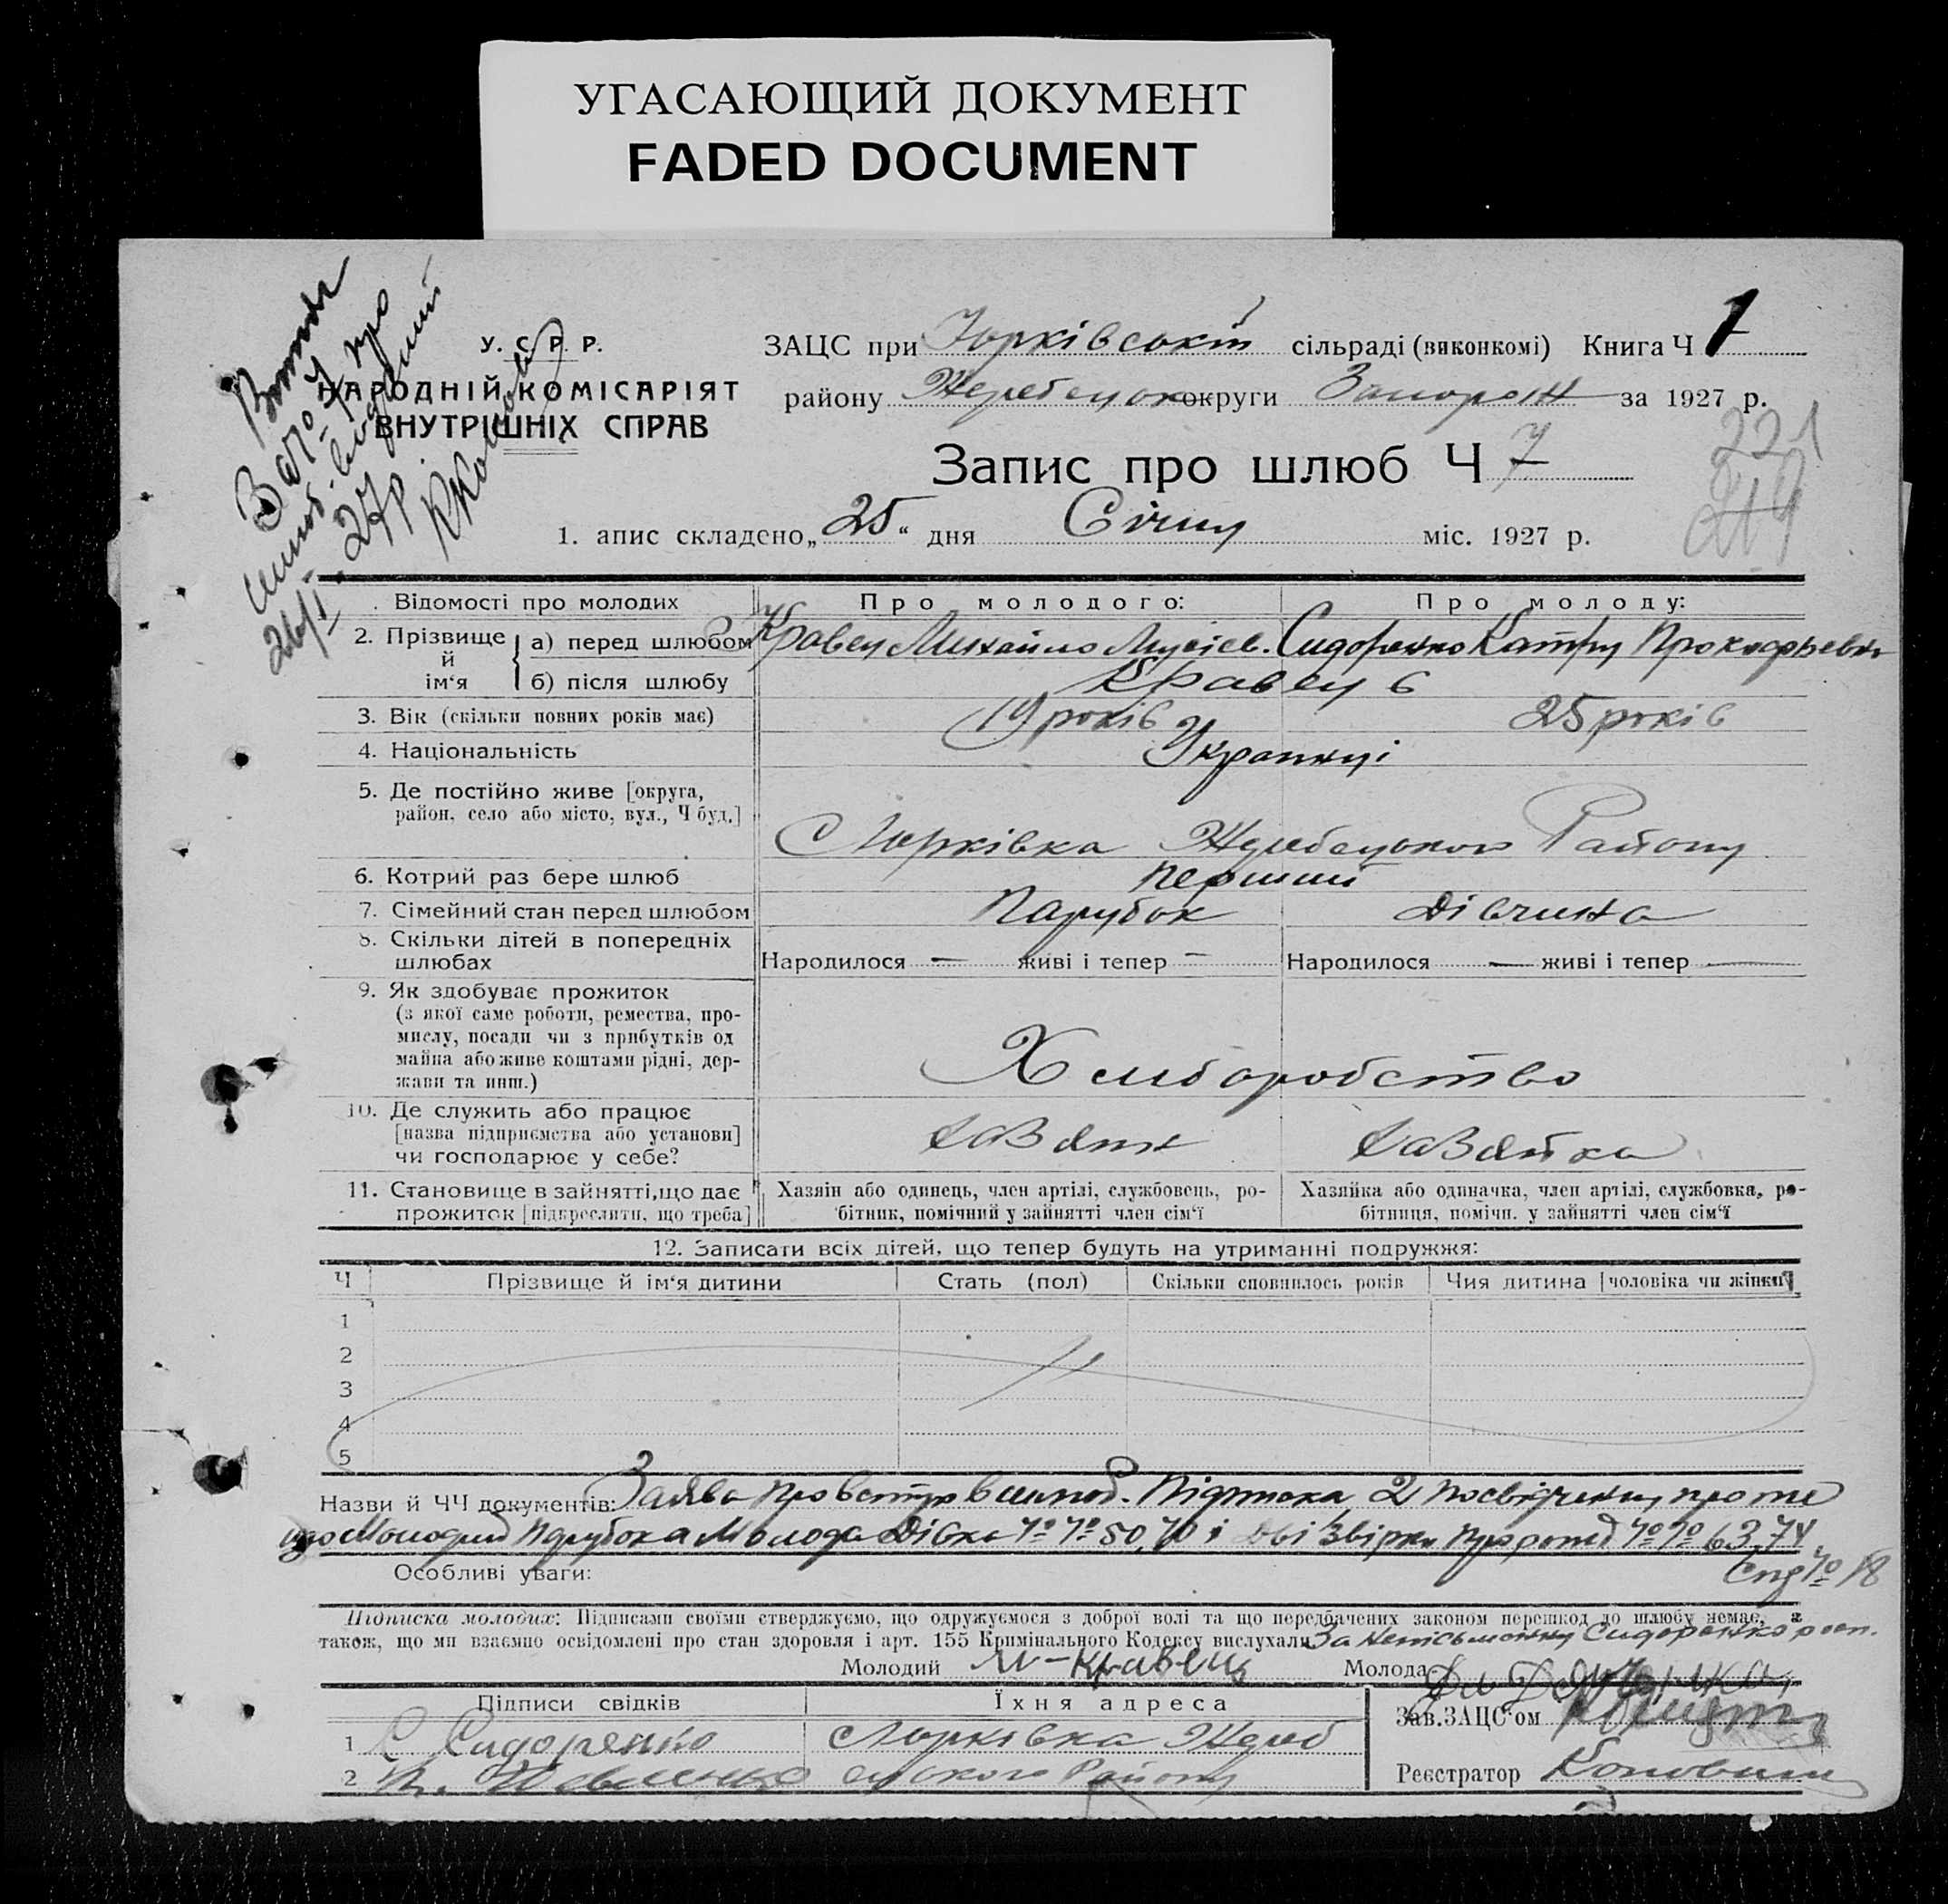 УГАСАЮЩИЙ ДОКУМЕНТ
FADED DOCUMENT
У. С. Р. Р.
НАРОДНІЙ КОМІСАРІЯТ
ВНУТРІШНІХ СПРАВ
ЗАЦС при Юрківській сільраді (виконкомі) Книга Ч 1
району Жеребецьк округи Запорож за 1927 р.
Запис про шлюб Ч 7
221
1. апис складено „25“ дня Січня міс. 1927 р.
26/I-27 р.
Відомості про молодих Про молодого: Про молоду:
2. Прізвище й ім‘я а) перед шлюбом Кравец Михайло Мусіев. Сидоренко Катря Прокофьевна
б) після шлюбу Кравец
3. Вік (скільки повних років має) 19 років 25 років
4. Національність Українці
5. Де постійно живе [округа,
район, село або місто, вул., Ч буд.]
С Юрківка Жеребецького Району
6. Котрий раз бере шлюб перший
7. Сімейний стан перед шлюбом Парубок Дівчина
8. Скільки дітей в попередніх
шлюбах Народилося — живі і тепер — Народилося — живі і тепер —
9. Як здобуває прожиток
(з якої саме роботи, ремества, про-
мислу, посади чи з прибутків од
майна або живе коштами рідні, дер-
жави та инш.)
Хліборобство
10. Де служить або працює
[назва підприємства або установи]
чи господарює у себе?
11. Становище в зайнятті, що дає
прожиток [підкреслити, що треба]
Хазяін або одинець, член артілі, службовець, ро-
бітник, помічний у зайнятті член сім‘ї
Хазяйка або одиначка, член артілі, службовка, ро-
бітниця, помічн. у зайнятті член сім‘ї
12. Записати всіх дітей, що тепер будуть на утриманні подружжя:
Ч Прізвище й ім‘я дитини Стать (пол) Скільки сповнилось років Чия дитина [чоловіка чи жінки]
1
2
3
4
5
Назви й ЧЧ документів: Заява про вступ в шлюб. Підписка 2 посвідчения про те
що Молодий Парубок а Молода Дівка №№ 50, 70 і Дві Звірки Про рожд №№ 63, 74.
Особливі уваги: Спр № 18
Підписка молодих: Підписами своїми стверджуємо, що одружуємося з доброї волі та що передбачених законом перешкод до шлюбу немає, а
також, що ми взаємно освідомлені про стан здоровля і арт. 155 Кримінального Кодексу вислухали За Неписьменну Сидоренко росп.
Молодий М-Кравець Молода
Підписи свідків Їхня адреса
Зав. ЗАЦС‘ом
1 С Сидоренко С Юрківка Жереб
2 ецького Району
Реєстратор